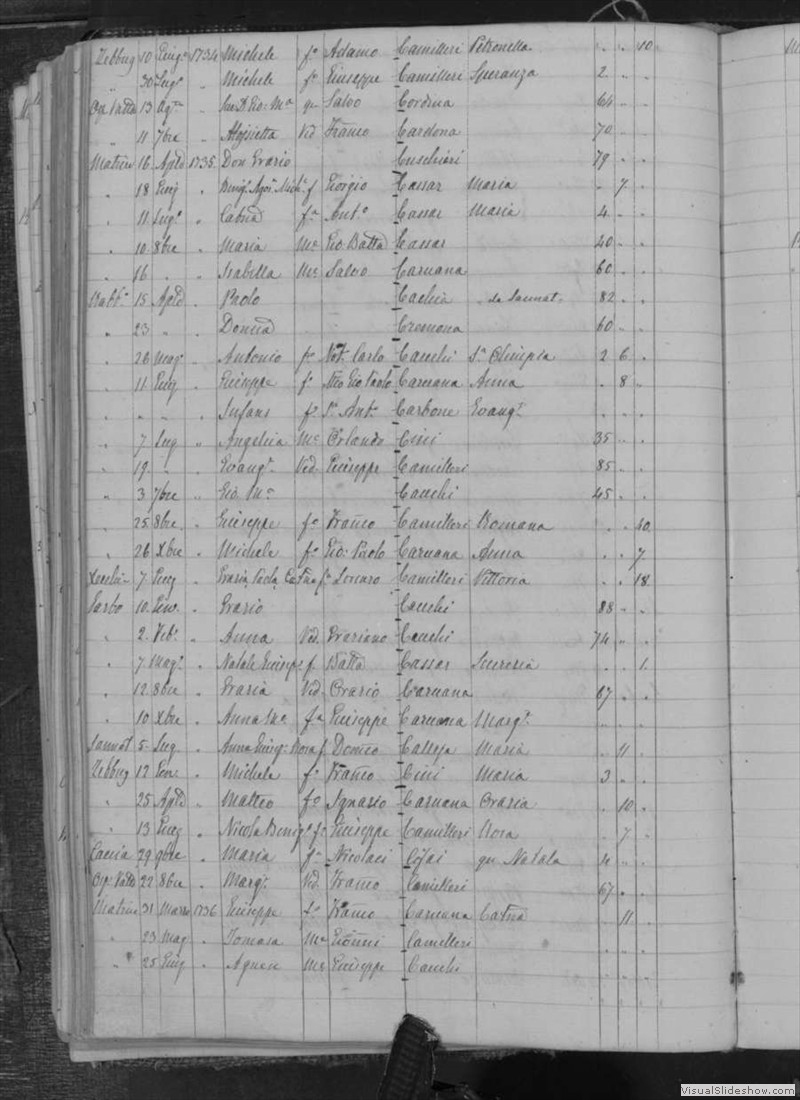 Zebbug 10 Eiug.o 1734 Michele f.o Adamo Camilleri Petronella . . 10
" 30 Lug.o " Michele f.o Giuseppe Camilleri Speranza 2 . .
13 Ag.to " Gio: M.a qu Salvo Cordina 64 . .
" 11 7bre " Aloisietta Vid Franco Cardona 70 . .
Matrice 16 Aple 1735 Don Grazio Cuschieri 79 . .
" 18 Giug " f Giorgio Cassar Maria . 7 .
" 11 Lug.o " f.a Ant.o Cassar Maria 4 . .
" 10 8bre " Maria M.e Gio Batta Cassar 40 . .
" 16 " " Isabella M.e Salvo Caruana 60 . .
Rabb.o 15 Aple " Paolo Cachia da Sannat. 82 . .
" 23 " " Cremona 60 . .
" 26 Mag.o " Antonio f.o Not. Carlo Cauchi S.a Olimpia 2 6 .
" 11 Giug " Giuseppe f.o Gio Paolo Caruana Anna . 8 .
" " " Infans f.o S.r Ant.o Carbone Evang.a . . .
" 7 Lug " Angelica M.e Orlando Cini 35 . .
" 19 " " Evang.a Vid. Giuseppe Camilleri 85 . .
" 3 7bre " Gio M.a Cauchi 45 . .
" 25 8bre " Giuseppe f.o Franco Camilleri Romana . . 40
" 26 Xbre " Michele f.o Gio: Paolo Caruana Anna . . 7
7 Giug " f.a Lorenzo Camilleri Vittoria . . 18
Garbo 10 Gen.o " Grazio Cauchi 88 . .
" 2 Feb.o " Anna Vid. Graziano Cauchi 74 . .
" 7 Mag.o " Natale Giuseppe f. Batta Cassar . . 1
" 12 8bre " Grazia Vid. Orazio Caruana 67 . .
" 10 Xbre " Anna Ma f.a Giuseppe Caruana Marg.a . . .
Sannat 5 Lug " f Domco Calleja Maria . 11 .
Zebbug 12 Gen " Michele f.o Franco Cini Maria 3 . .
" 25 Aple " Matteo f.o Ignazio Caruana Grazia . 10 .
" 13 Giug " f.o Giuseppe Camilleri Rosa . 7 .
Caccia 29 9bre " Maria f.a Nicolaci qu Natala 4 . .
22 8bre " Marg.a Vid. Franco Camilleri 67 . .
Matrice 31 Marzo 1736 Giuseppe f.o Franco Caruana Catna . 11 .
" 23 Mag " Tomasa M.e Camilleri . . .
" 25 Giug " Agnese M.e Giuseppe Cauchi . . .
VisualSlideshow.com